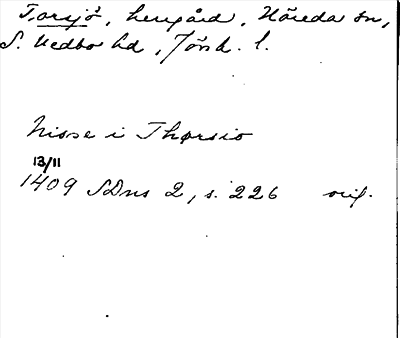 Torsjö, herrgård, Näveda sn,
S. Vedbo hd, Jönk. l.
Nisse i Thørsio
13/11
1409 SDns 2, s. 226 orig.